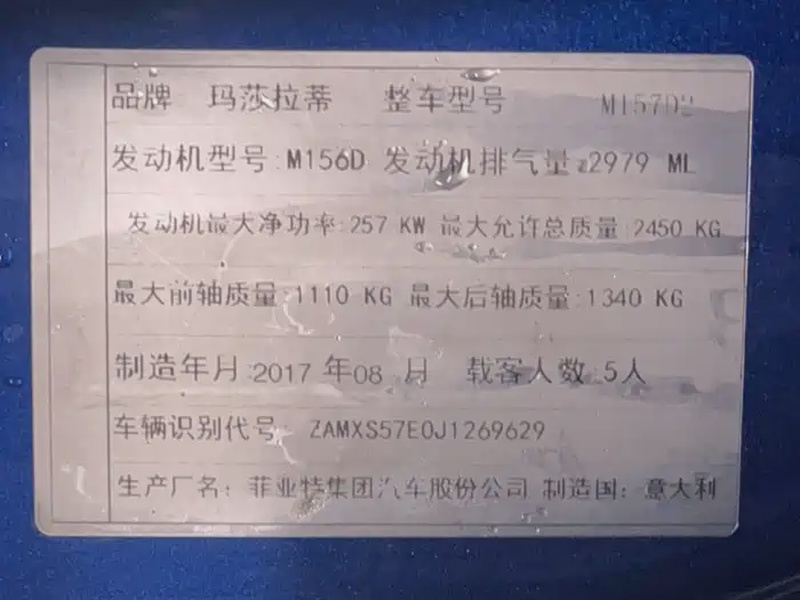 品牌 玛莎拉蒂 整车型号 M157D2
发动机型号:M156D 发动机排气量:2979 ML
发动机最大净功率:257 KW 最大允许总质量:2450 KG
最大前轴质量:1110 KG 最大后轴质量:1340 KG
制造年月:2017 年08 月 载客人数:5人
车辆识别代号: ZAMXS57E0J1269629
生产厂名：菲亚特集团汽车股份公司 制造国：意大利